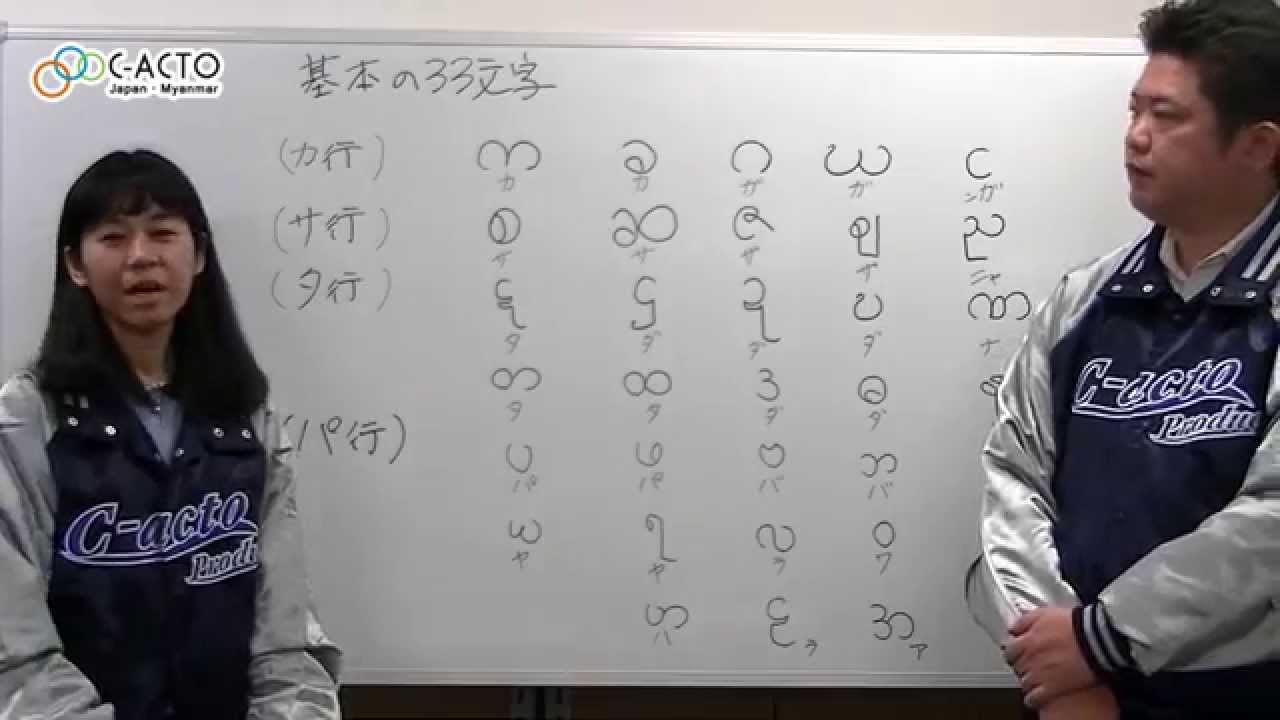 C-ACTO
Japan・Myanmar
基本の33文字
(カ行) က ခ ဂ ဃ င
カ カ ガ ガ ンガ
(サ行) စ ဆ ဇ ဈ ည
サ サ ザ ザ ニャ
(タ行) ဋ ဌ ဍ ဎ ဏ
タ ダ ダ ダ ナ
တ ထ ဒ ဓ
タ タ ダ ダ
(パ行) ပ ဖ ဗ ဘ
パ パ バ バ
ယ ရ လ ဝ
ヤ ヤ ラ ワ
ဟ ဠ အ
ハ ラ ア
C-acto
Produ
C-acto
Produc